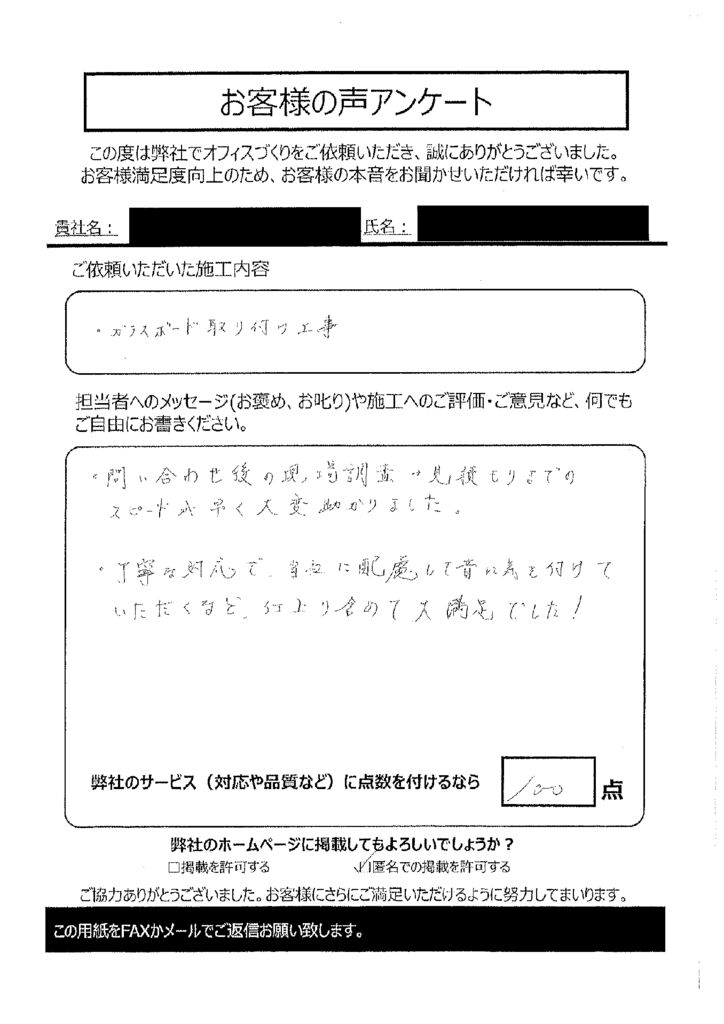 お客様の声アンケート
この度は弊社でオフィスづくりをご依頼いただき、誠にありがとうございました。
お客様満足度向上のため、お客様の本音をお聞かせいただければ幸いです。
貴社名： 氏名：
ご依頼いただいた施工内容
・ガラスボード取り付け工事
担当者へのメッセージ(お褒め、お叱り)や施工へのご評価・ご意見など、何でも
ご自由にお書きください。
・問い合わせ後の現場調査→見積もりまでの
スピードが早く大変助かりました。
・丁寧な対応で、当社に配慮して音に気を付けて
いただくなど、仕上り含めて大満足でした！
弊社のサービス（対応や品質など）に点数を付けるなら 100 点
弊社のホームページに掲載してもよろしいでしょうか？
□掲載を許可する ☑匿名での掲載を許可する
ご協力ありがとうございました。お客様にさらにご満足いただけるように努力してまいります。
この用紙をFAXかメールでご返信お願い致します。